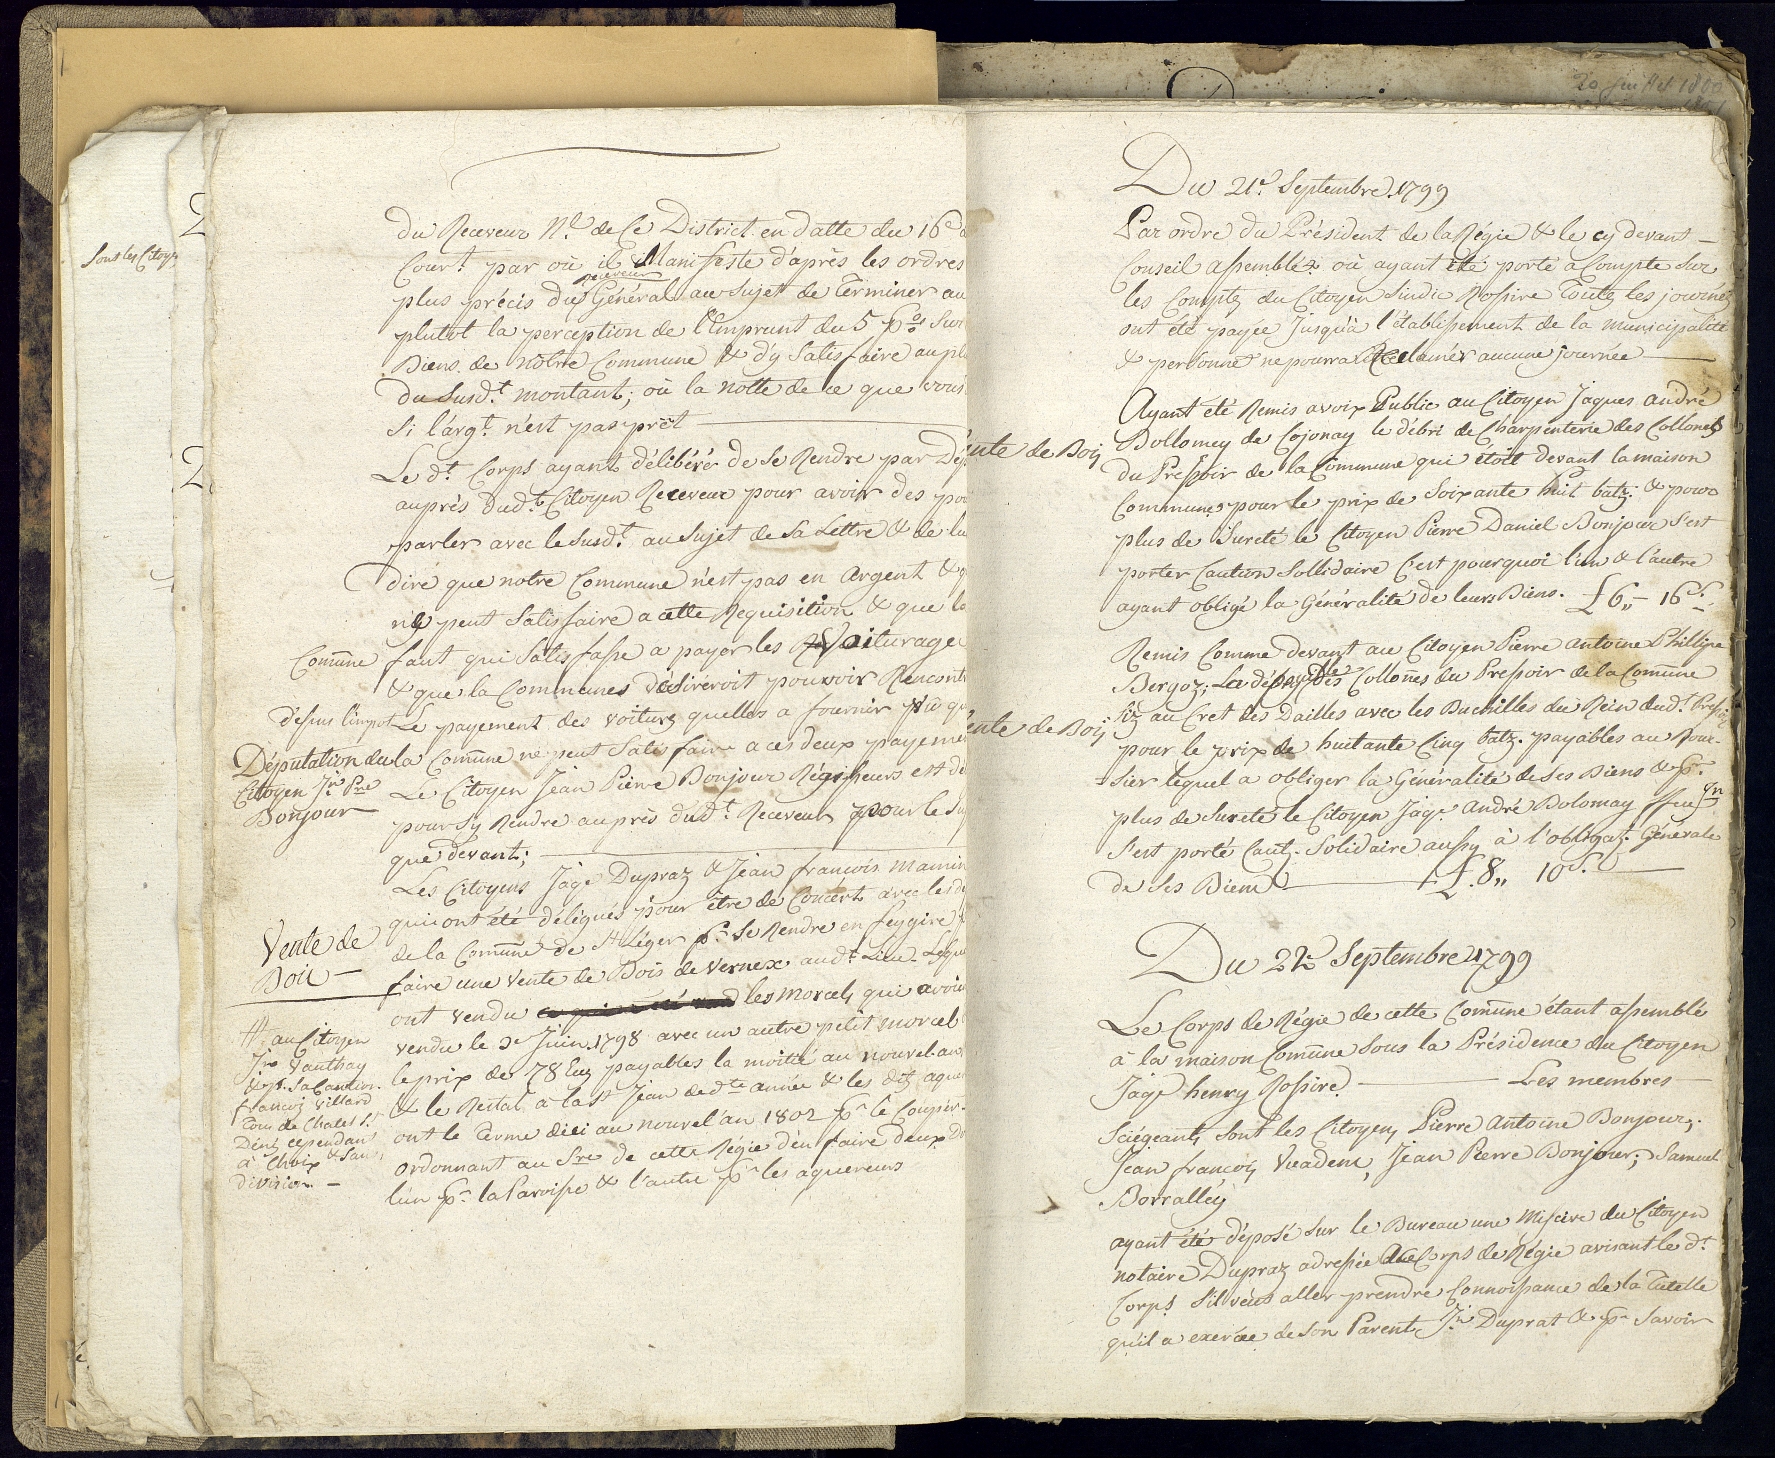 Sont les Citoy
du Receveur Nl. de Ce District en datte du 16e
Court. par où il Manifeste d'après les ordres
plus précis du receveur Général au Sujet de Terminer au
plutot la perception de l'Emprunt du 5 p% Sur
Biens de notre Commune & d'y Satisfaire au pl
du Susdt. montant; où la notte de ce que vous
Si l'argt. n'est pas prêt
Le dt. Corps ayant délibérér de Se Rendre par Dép
auprès dudt. Citoyen Receveur pour avoir des pou
parler avec le Susdt. au Sujet de Sa Lettre & de lu
diré que notre Commune n'est pas en Argent &
ne peut Satisfaire a cette Requisition & que la
Comune
faut qui Satisfasse a payer les Voiturage
& que la Communes désireroit pouvoir Rencont
depuis l'impot
Le payement des voiturs quelles a fournir
la Comune ne peut Satisfaire a ces deux payeme
Députation du
Citoyen Jn Pre
Bonjour
Le Citoyen Jean Pierre Bonjour Régisseurs est dé
pour Sy Rendre auprès dudt. Receveur pour le Suj
que devant;
Les Citoyens Jaqe Dupraz & Jean francois mamin
qui ont été délégués pour être de Concert avec les d
de la Comune de St Léger pr. Se Rendre en feygire
Vente de
Bois
faire une vente de Bois de Vernex audt. Lieu. Lesque
ont vendu les Morcels qui avoi
# au Citoyen
Vauthay
& pr. Sa Caution.
françois Villard
Tous de Chatel St.
Denis cependant
à Choix & Sans
division.
vendu le 3e Juin 1798 avec un autre petit morcel
le prix de 78 Ecus payables la moitié au nouvel-an
& le Restal a la St Jean de dte année & les dits aque
ont le Terme dici au nouvel'an 1802 pr le Couper.
ordonnant au Sre de cette Régie d'en faire deux Do
l'un pr la Paroisse & l'autre pr les aquereurs
20 Juillet 1800
Du 21e. Septembre. 1799
Par ordre du Président de la Régie & le cy devant
Conseil assemblée où ayant été porté a Compte Sur
les Comptes du Citoyen Sindic Rossire Toutes les journées
ont été payée jusqu'à l'établissement de la municipalité
& personne ne pourra Réclamér aucune journée
ente de Bois
Ayant été Remis a voix Public au Citoyen Jaques andré
Bollomey de Cojonay le débri de Charpenterie des Collones
du Pressoir de la Commune qui étoit devant la maison
Communes pour le prix de Soixante huit batz. & pour
plus de Sureté le Citoyen Pierre Daniel Bonjour S'est
porter Caution Sollidaire C'est pourquoi l'un & l'autre
ayant obligé la Généralité de leurs Biens. £ 6,, - 16 S.
Remis Comme devant au Citoyen Pierre Antoine Phillipe
Bergoz; Le des Collones du Pressoir de la Comune
ente de Bois
Siz au Cret des Dailles avec les Buchilles du Rein dudt. Pressoir
pour le prix de huitante Cinq batz. payables au Bour-
Sier lequel a obliger la Généralité de Ses Biens & pr.
plus de Sureté le Citoyen Jaqe andré Bolomay ffeu Jn
S'est porté Caut. Solidaire aussy à l'obligat. Générale
de Ses Biens £. 8,, 10 S.
Du 22e Septembre 1799
Le Corps de Régie de cette Comune étant assemblé
à la maison Comune Sous la Présidence du Citoyen
Jaqe henry Rossire. Les membres
Sciégeants Sont les Citoyens Pierre Antoine Bonjour,
Jean françois Vuadens, Jean Pierre Bonjour; Samuel
Borralley
ayant été déposé Sur le Bureau une Miscive du Citoyen
notaire Dupraz adressée au Corps de Régie avisant le dt.
Corps S'il veut aller prendre Connoissance de la Tutelle
qu'il a exercée de Son Parent Jn Duprat & pr Savoir